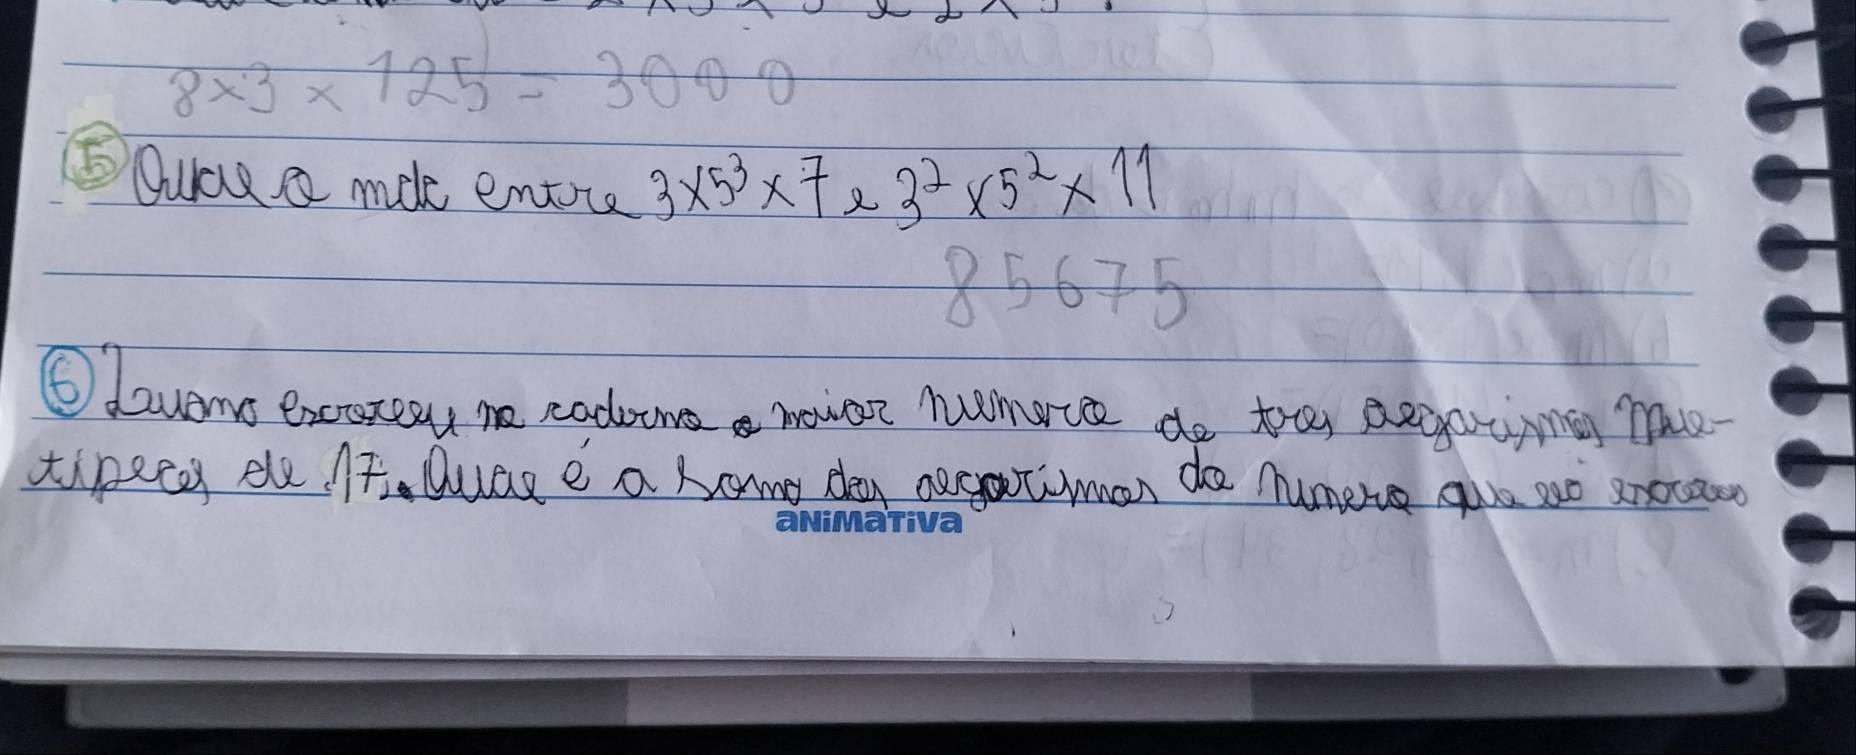 8x3 x 125 = 3000
5 Qual o mdc entre 3x5³x7 e 3²x5²x11
85675
6 Luana escreveu no caderno o maior numero de tres algarismos mul-
tiplos de 17. Qual é a soma dos algarismos do numero que
aNiMaTiVa